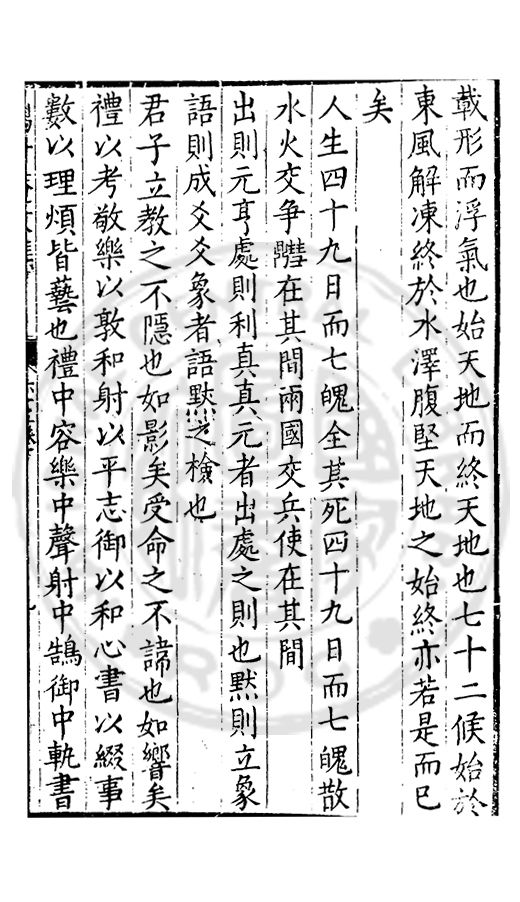 戴形而浮氣也始天地而終天地也七十二候始於
東風解凍終於水澤腹堅天地之始終亦若是而已
矣
人生四十九日而七魄全其死四十九日而七魄散
水火交争䥶在其間兩國交兵使在其間
出則元亨處則利真真元者出處之則也黙則立象
語則成爻爻象者語黙之檢也
君子立教之不隱也如影矣受命之不諦也如響矣
禮以考敬樂以敦和射以平志御以和心書以綴事
數以理煩皆藝也禮中容樂中聲射中鵠御中軌書